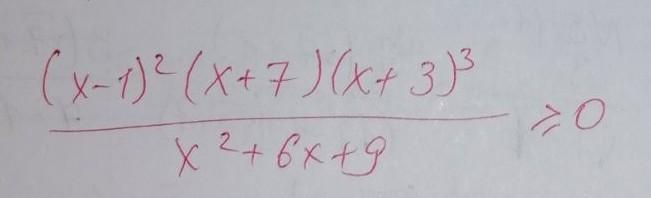 (x-1)²(x+7)(x+3)³
x²+6x+9
≥0